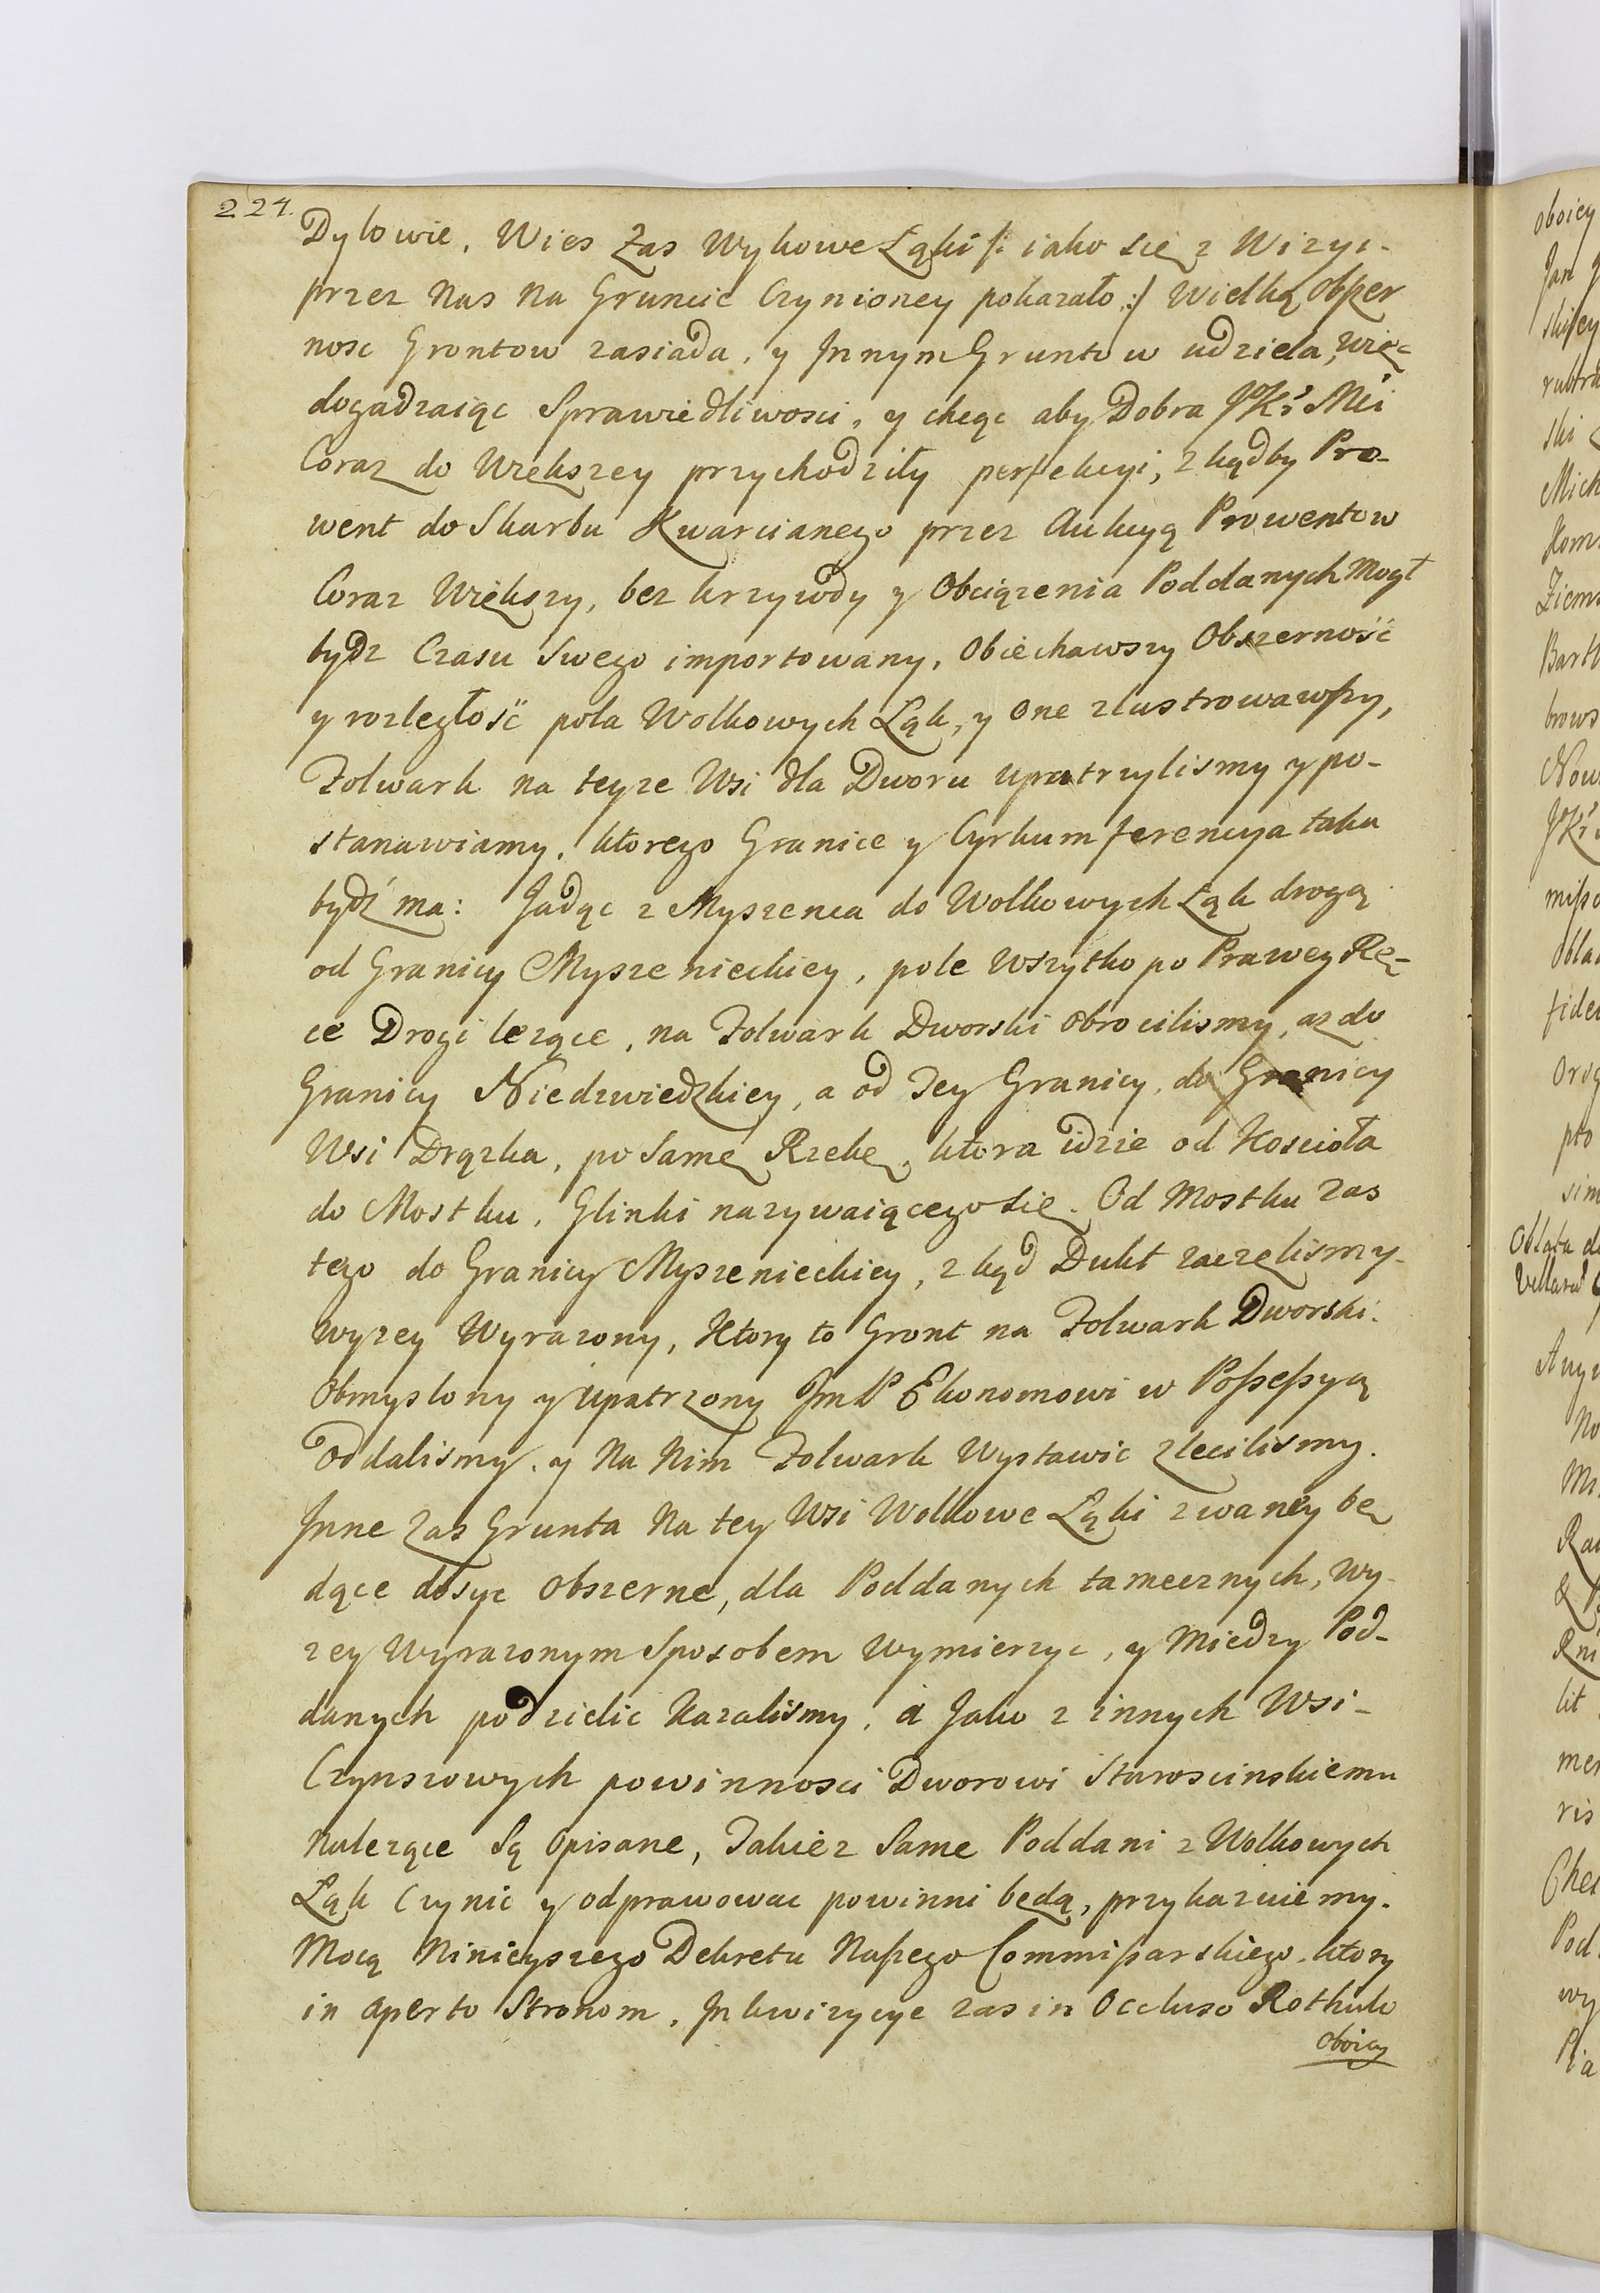 224.
Dylowie, Wies Zas Wykowe Łąki /: iako się z Wizyi-
przez Nas na Gruncie Czynioney pokazało :/ Wielką Obszer
nosc Grontow zasiada, y Innym Gruntow udziela, więc
dogadzaiąc Sprawiedliwosci, y chcąc aby Dobra JoKr Mci
Coraz do Większey przychodziły perfekcyi, zkądby Pro-
went do Skarbu Kwarcianego przez Aukcyą Prowentow
Coraz Większy, bez krzywdy y Obciązenia Poddanych Mogł
bydz Czasu Swego importowany, Obiechawszy Obszerność
y rozległość pola Wolkowych Łąk, y one zlustrowawszy,
Folwark na teyze Wsi dla Dworu upatrzylismy y po-
stanawiamy, ktorego Granice y Cyrkumferencya taka
bydź ma: Jadąc z Myszenca do Wolkowych Łąk drogą
od Granicy Myszenieckiey, pole wszytko po Prawey Rę-
ce Drogi lezące, na Folwark Dworski obrocilismy, az do
Granicy Niedzwiedzkiey, a od Tey Granicy, do Granicy
Wsi Drązka, po Samę Rzekę, ktora idzie od Koscioła
do Mostku, Glinki nazywaiącego się. Od Mostku Zas
tego do Granicy Myszenieckiey, zkąd Dukt zaczęlismy-
wyzey Wyrazony, Ktory to Gront na Folwark Dworski.
Obmyslony y upatrzony JmP Ekonomowi w Possessyą
Oddalismy, y Na Nim Folwark Wystawic zlecilismy.
Inne Zas Grunta Na tey Wsi Wolkowe Łąki zwaney bę
dące dosyc Obszerne, dla Poddanych tamecznych, wy-
zey Wyrazonym Sposobem Wymierzyc, y Miedzy Pod-
danych podzielic Kazalismy, á Jako z innych Wsi-
Czynszowych powinnosci Dworowi Staroscinskiemu
Nalezące Są opisane, Takiez Same Poddani z Wolkowych
Łąk Czynic y odprawowac powinni będą, przykazuiemy.
Mocą Ninieyszego Dekretu Naszego Commissarskiego, ktory
in aperto Stronom, Inkwizycye zas in Occluso Rothulo
oboicy